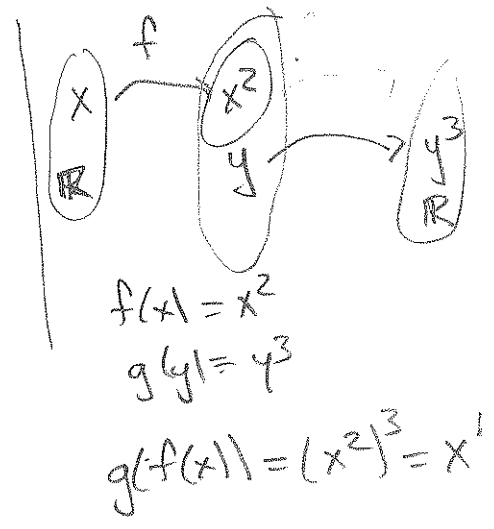 f
x x² y³
ℝ y ℝ
f(x) = x²
g(y) = y³
g(f(x)) = (x²)³ = x